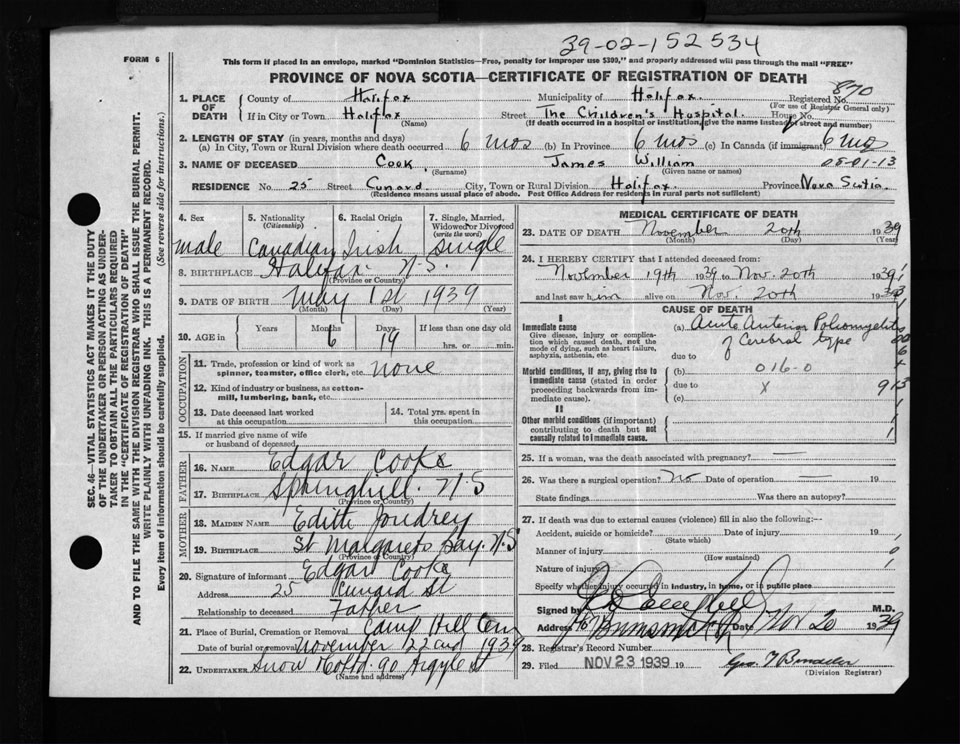 39-02-152534
FORM 6
This form if placed in an envelope, marked "Dominion Statistics—Free, penalty for improper use $300," and properly addressed will pass through the mail "FREE"
PROVINCE OF NOVA SCOTIA—CERTIFICATE OF REGISTRATION OF DEATH
870
1. PLACE OF DEATH County of Halifax Municipality of Halifax Registered No.
(For use of Registrar General only)
If in City or Town Halifax Street The Children's Hospital. House No.
(Name) (If death occurred in a hospital or institution, give the name instead of street and number)
2. LENGTH OF STAY (in years, months and days)
(a) In City, Town or Rural Division where death occurred 6 mos (b) In Province 6 mos (c) In Canada (if immigrant) 6 mos
3. NAME OF DECEASED Cook, James William 05-01-13
(Surname) (Given name or names)
RESIDENCE No. 25 Street Cunard City, Town or Rural Division Halifax. Province Nova Scotia.
(Residence means usual place of abode. Post Office Address for residents in rural parts not sufficient)
4. Sex 5. Nationality (Citizenship) 6. Racial Origin 7. Single, Married, Widowed or Divorced (write the word)
male Canadian Irish single
8. BIRTHPLACE Halifax N.S.
(Province or Country)
9. DATE OF BIRTH May 1st 1939
(Month) (Day) (Year)
10. AGE in Years Months Days If less than one day old
6 19 hrs. or min.
OCCUPATION
11. Trade, profession or kind of work as spinner, teamster, office clerk, etc. none
12. Kind of industry or business, as cotton-mill, lumbering, bank, etc.
13. Date deceased last worked at this occupation
14. Total yrs. spent in this occupation
15. If married give name of wife or husband of deceased
FATHER
16. NAME Edgar Cooks
17. BIRTHPLACE Springhill. N.S
(Province or Country)
MOTHER
18. MAIDEN NAME Edith Joudrey
19. BIRTHPLACE St Margarets Bay. N.S
(Province or Country)
20. Signature of informant Edgar Cooks
Address 25 Cunard St
Relationship to deceased Father
21. Place of Burial, Cremation or Removal Camp Hill Cem
Date of burial or removal November 22nd 1939
22. UNDERTAKER Snow & Co Ltd. 90 Argyle St
(Name and address)
MEDICAL CERTIFICATE OF DEATH
23. DATE OF DEATH November 20th 1939
(Month) (Day) (Year)
24. I HEREBY CERTIFY that I attended deceased from:
November 19th 1939 to Nov. 20th 1939
and last saw him alive on Nov. 20th 1939
CAUSE OF DEATH
I
Immediate cause
Give disease, injury or complication which caused death, not the mode of dying, such as heart failure, asphyxia, asthenia, etc.
(a) Acute Anterior Poliomyelitis
of Cerebral type
due to
Morbid conditions, if any, giving rise to immediate cause (stated in order proceeding backwards from immediate cause).
(b) 016-0
due to X 913
(c)
II
Other morbid conditions (if important) contributing to death but not causally related to immediate cause.
25. If a woman, was the death associated with pregnancy? —
26. Was there a surgical operation? no Date of operation — 19
State findings Was there an autopsy?
27. If death was due to external causes (violence) fill in also the following:—
Accident, suicide or homicide? Date of injury 19
(State which)
Manner of injury
(How sustained)
Nature of injury
Specify whether injury occurred in industry, in home, or in public place
Signed by M.D.
Address Brunswick Date Nov 20 1939
28. Registrar's Record Number
29. Filed NOV 23 1939 19
(Division Registrar)
SEC. 46—VITAL STATISTICS ACT MAKES IT THE DUTY
OF THE UNDERTAKER OR PERSON ACTING AS UNDERTAKER
TO OBTAIN ALL THE PARTICULARS REQUIRED
IN THE "CERTIFICATE OF REGISTRATION OF DEATH"
AND TO FILE THE SAME WITH THE DIVISION REGISTRAR WHO SHALL ISSUE THE BURIAL PERMIT.
WRITE PLAINLY WITH UNFADING INK. THIS IS A PERMANENT RECORD.
Every item of information should be carefully supplied. (See reverse side for instructions.)